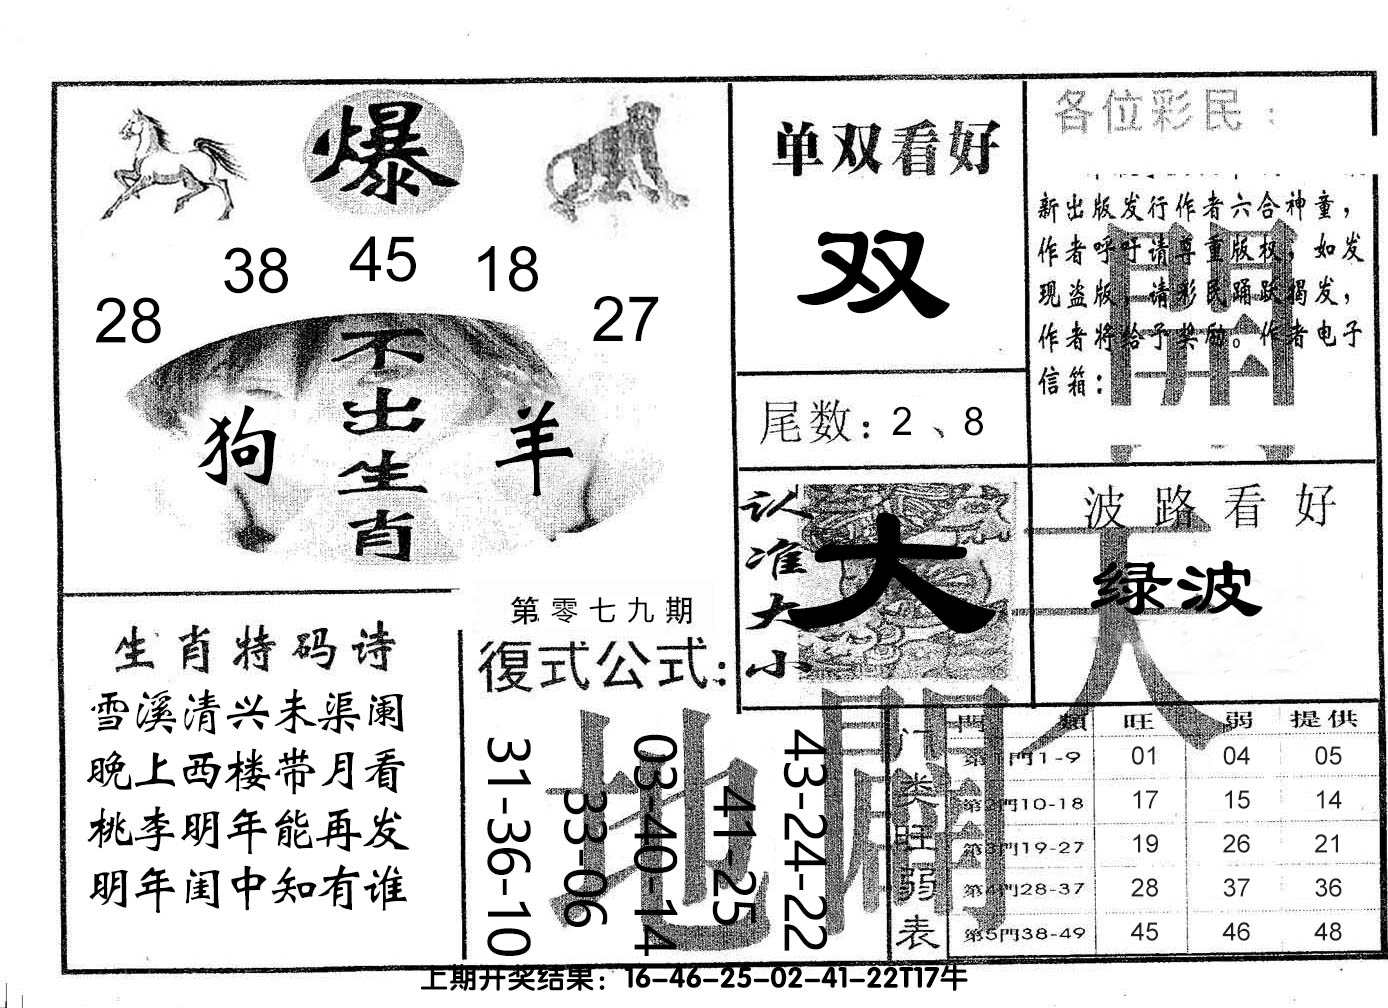 爆
28
38
45
18
27
不出生肖
狗
羊
单双看好
双
尾数：2、8
各位彩民：
新出版发行作者六合神童，
作者呼吁请尊重版权，如发
现盗版，请彩民踊跃揭发，
作者将给予奖励。作者电子
信箱：
開
认准大小
大
波路看好
绿波
天
生肖特码诗
雪溪清兴未渠阑
晚上西楼带月看
桃李明年能再发
明年闺中知有谁
第零七九期
復式公式：
31-36-10
33-06
03-40-14
41-25
43-24-22
地
門類 旺 弱 提供
门类旺弱表
第1門1-9 01 04 05
第2門10-18 17 15 14
第3門19-27 19 26 21
第4門28-37 28 37 36
第5門38-49 45 46 48
上期开奖结果：16-46-25-02-41-22T17牛